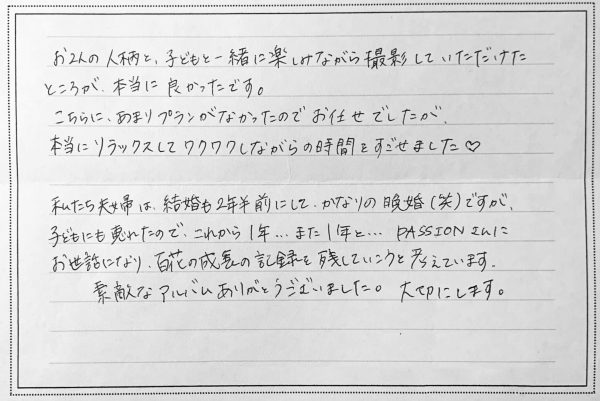 お2人の人柄と、子どもと一緒に楽しみながら撮影していただけた
ところが、本当に良かったです。
こちらに、あまりプランがなかったのでお任せでしたが、
本当にリラックスしてワクワクしながらの時間をすごせました♡
私たち夫婦は、結婚も2年半前にして、かなりの晩婚(笑)ですが、
子どもにも恵れたので、これから1年…また1年と… PASSIONさんに
お世話になり、百花の成長の記録を残していこうと考えています。
素敵なアルバムありがとうございました。 大切にします。